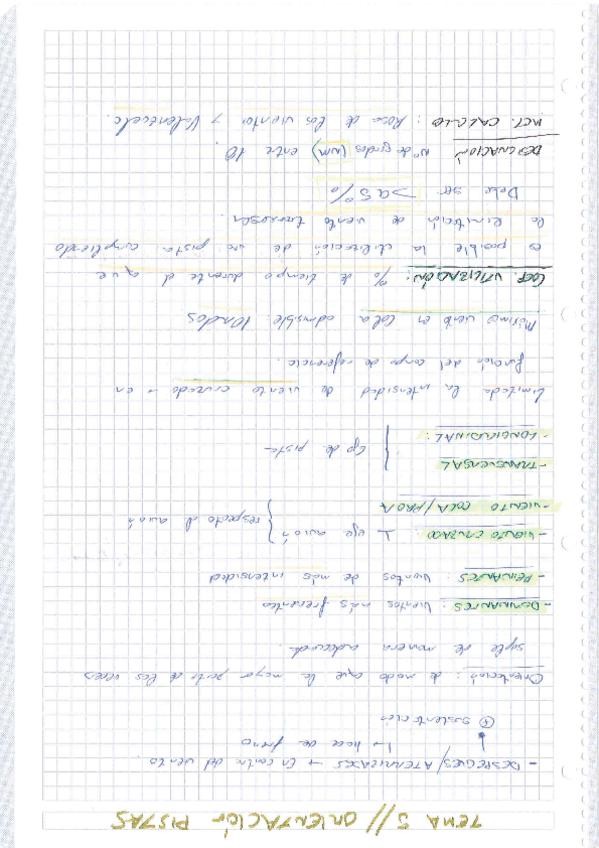 TEMA 5 // ORIENTACIÓN PISTAS
- DESPEGUES/ATERRIZAJES → En contra del viento.
↳ hace de freno
⊕ sustentación
Orientación: de modo que la mayor parte de las veces
sople de manera adecuada.
- DOMINANTES: Vientos más frecuentes
- REINANTES: Vientos de más intensidad
- VIENTO CRUZADO: ⊥ eje avión
- VIENTO COLA/PROA
} respecto al avión
- TRANSVERSAL
- LONGITUDINAL:
} eje de pista
Limitada la intensidad de viento cruzado → en
función del campo de referencia.
Máximo viento en cola admisible: 10 nudos
COEF. UTILIZACIÓN: % de tiempo durante el que
es posible la utilización de una pista cumpliendo
la limitación de viento transversal.
Debe ser >95%
DESIGNACIÓN Nº de grados (NM) entre 10.
MET. CALCULO: Rosa de los vientos y